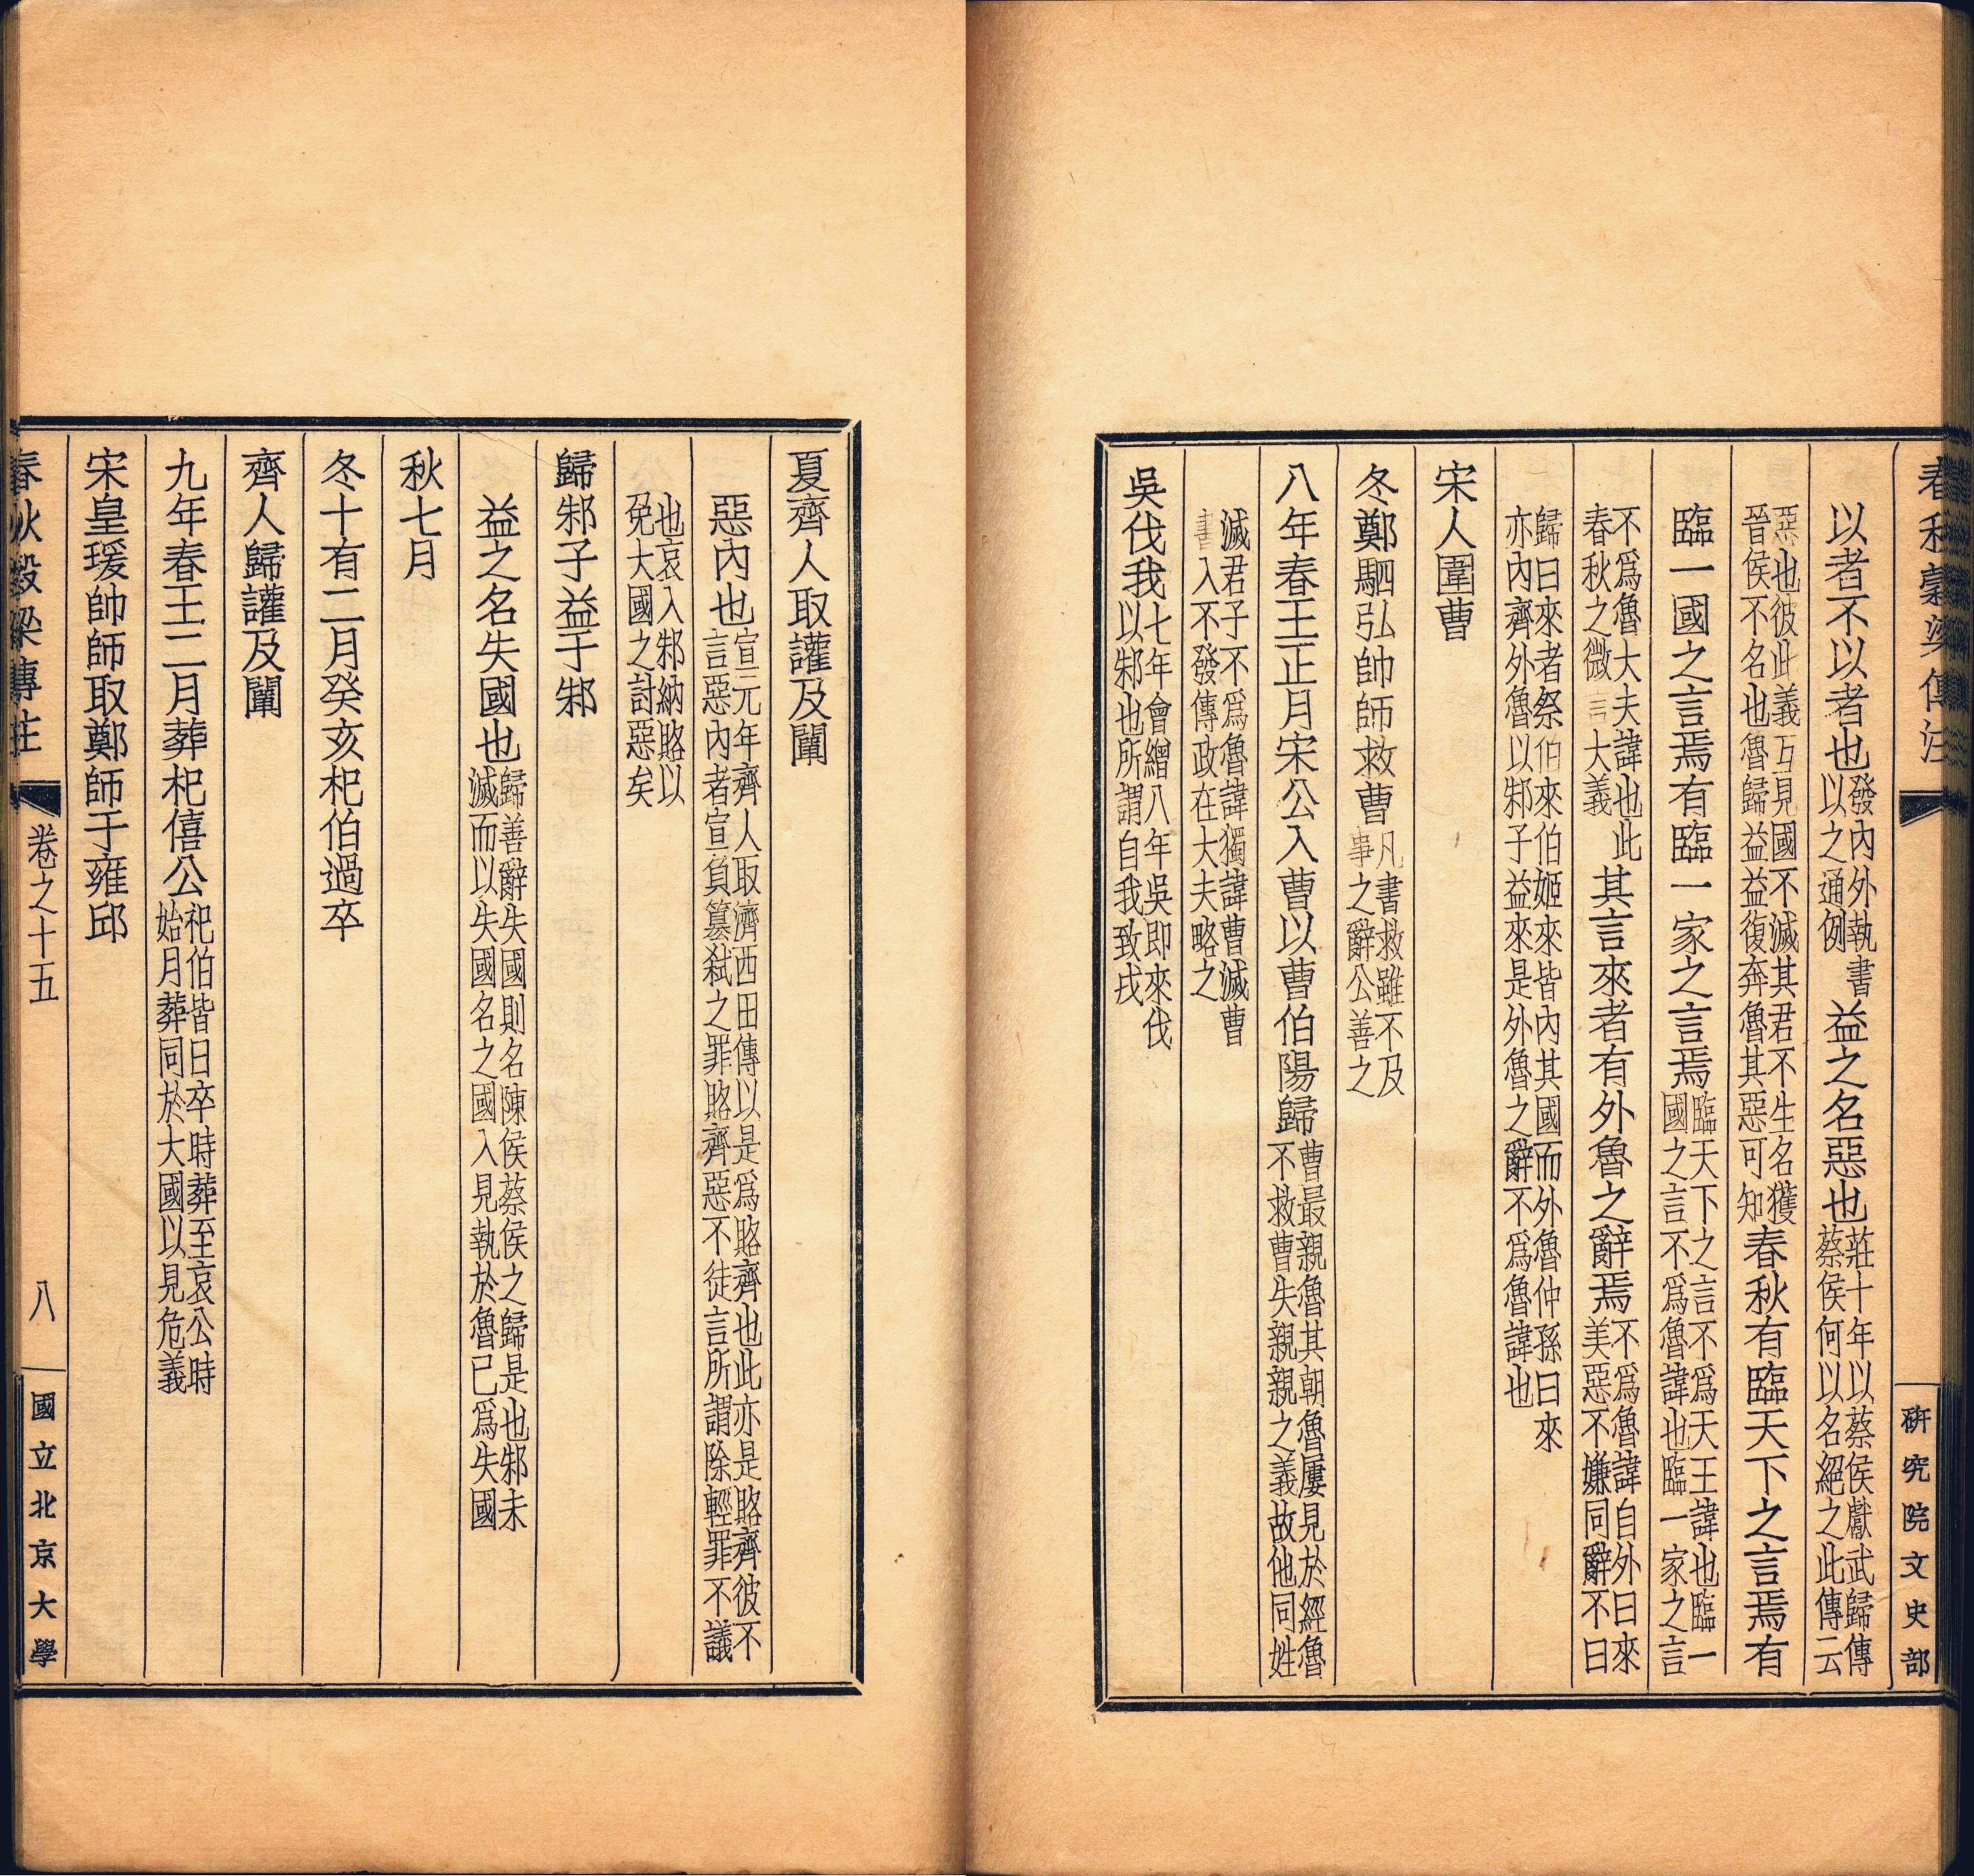 春秋穀梁傳注
研究院文史部
以者不以者也發內外執書以之通例益之名惡也莊十年以蔡侯獻武歸傳蔡侯何以名絕之此傳云
惡也彼此義互見國不滅其君不生名獲晉侯不名也魯歸益益復奔魯其惡可知春秋有臨天下之言焉有
臨一國之言焉有臨一家之言焉臨天下之言不爲天王諱也臨一國之言不爲魯諱也臨一家之言
不爲魯大夫諱也此春秋之微言大義其言來者有外魯之辭焉不爲魯諱自外曰來美惡不嫌同辭不曰
歸曰來者祭伯來伯姬來皆內其國而外魯仲孫曰來亦內齊外魯以邾子益來是外魯之辭不爲魯諱也
宋人圍曹
冬鄭駟弘帥師救曹凡書救雖不及事之辭公善之
八年春王正月宋公入曹以曹伯陽歸曹最親魯其朝魯屢見於經魯不救曹失親親之義故他同姓
滅君子不爲魯諱獨諱曹滅曹書入不發傳政在大夫略之
吳伐我七年會繒八年吳即來伐以邾也所謂自我致戎
夏齊人取讙及闡
惡內也宣元年齊人取濟西田傳以是爲賂齊也此亦是賂齊彼不言惡內者宣負篡弒之罪賂齊惡不徒言所謂除輕罪不議
也哀入邾納賂以免大國之討惡矣
歸邾子益于邾
益之名失國也歸善辭失國則名陳侯蔡侯之歸是也邾未滅而以失國名之國入見執於魯已爲失國
秋七月
冬十有二月癸亥杞伯過卒
齊人歸讙及闡
九年春王二月葬杞僖公杞伯皆日卒時葬至哀公時始月葬同於大國以見危義
宋皇瑗帥師取鄭師于雍邱
春秋穀梁傳注 卷之十五 八 國立北京大學